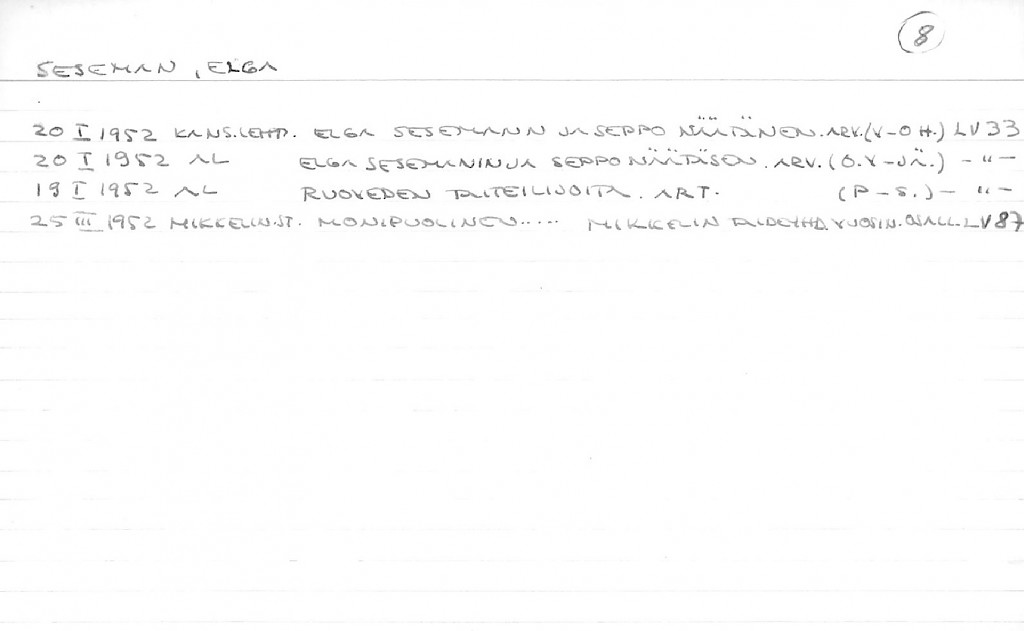 8
SESEMAN, ELGA
20 I 1952 KANS.LEHD. ELGA SESEMANN JA SEPPO NÄÄTÄNEN. ARV. (V-O H.) LV 33
20 I 1952 AL ELGA SESEMANIN JA SEPPO NÄÄTÄSEN. ARV. (O.V-JÄ.) - " -
19 I 1952 AL RUOVEDEN TAITEILIJOITA. ART. (P-S.) - " -
25 III 1952 MIKKELIN.ST. MONIPUOLINEN..... MIKKELIN TAIDEYHD. VUOSIN. OSALL. LV 87